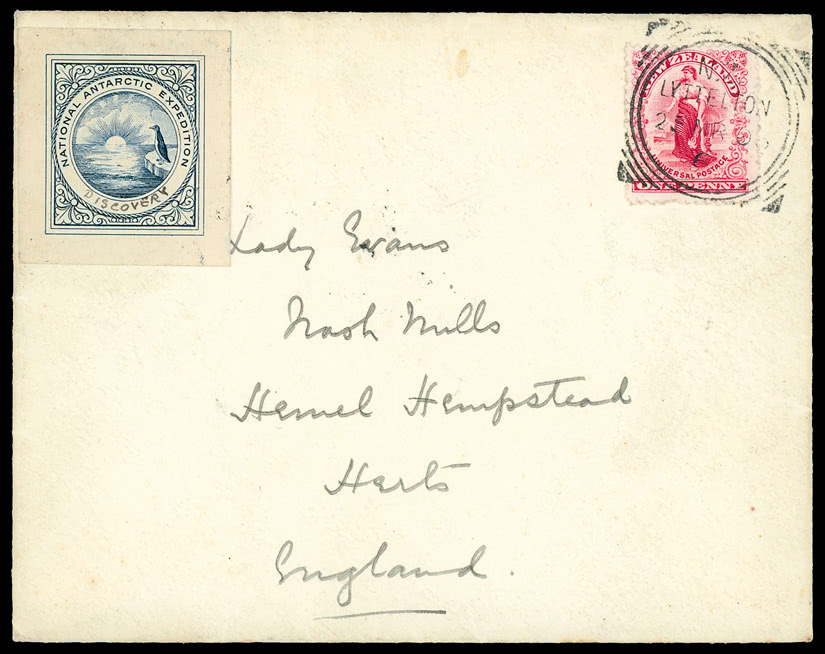 NATIONAL ANTARCTIC EXPEDITION
DISCOVERY
NEW ZEALAND
UNIVERSAL POSTAGE
ONE PENNY
LYTTELTON
Lady Evans
Nash Mills
Hemel Hempstead
Herts
England.